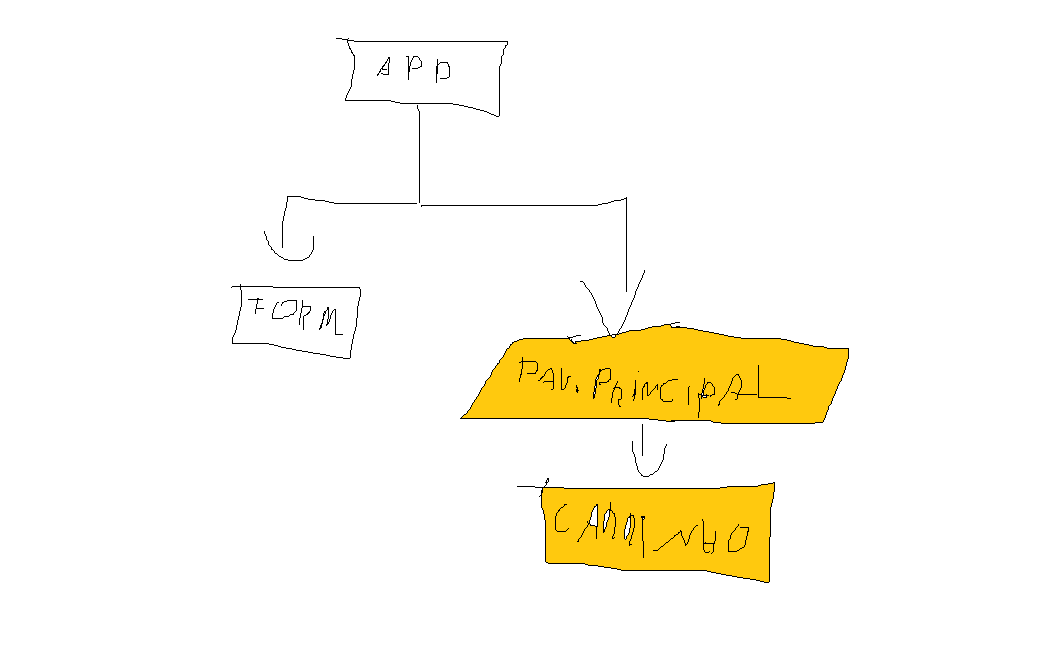 APP
FORM
PAG. PRINCIPAL
CARRINHO